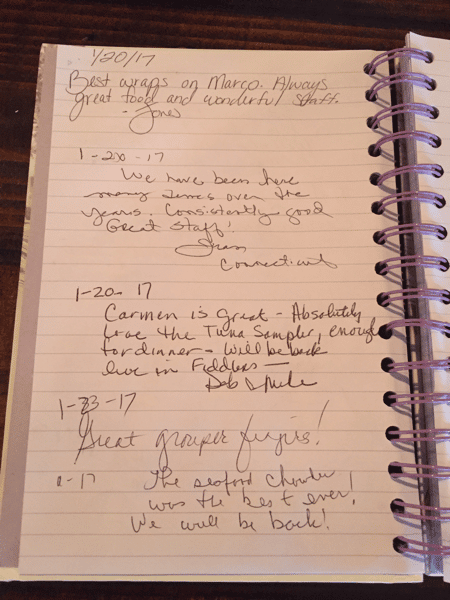 1/20/17
Best wraps on Marco. Always
great food and wonderful staff.
- Jones
1-20-17
We have been here
many times over the
years. Consistently good
Great staff!
Connecticut
1-20-17
Carmen is great - Absolutely
love the Tuna Sampler, enough
for dinner - will be back
live in Fiddlers -
Deb
1-23-17
Great grouper fingers!
-17
The seafood chowder
was the best ever!
We will be back!